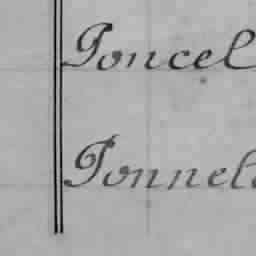 Poncel
Ponnel